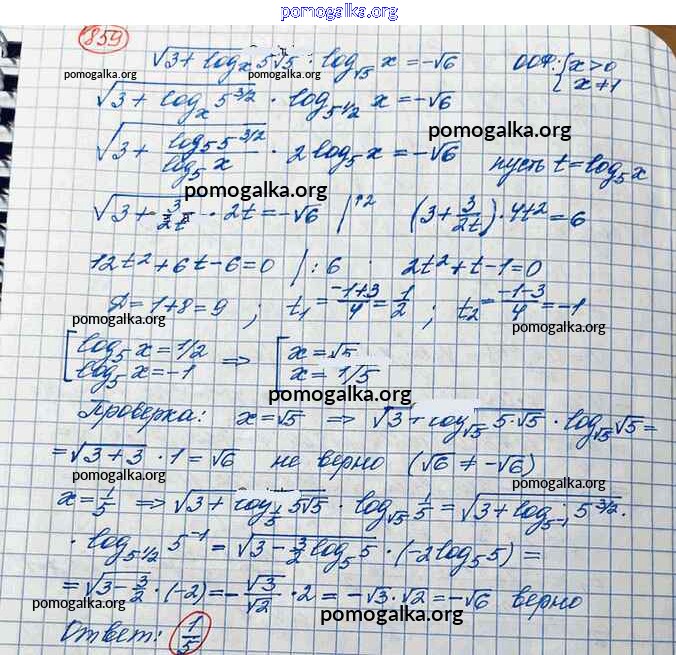 pomogalka.org
859
√(3+log_x 5√5) · log_√5 x = -√6 ООФ: { x>0
x≠1
pomogalka.org pomogalka.org pomogalka.org
√(3 + log_x 5^(3/2)) · log_5^(1/2) x = -√6
pomogalka.org
√(3 + log_5 5^(3/2) / log_5 x) · 2 log_5 x = -√6 пусть t = log_5 x
pomogalka.org
√(3 + 3/2t) · 2t = -√6 /↑2 (3 + 3/2t) · 4t² = 6
12t² + 6t - 6 = 0 / : 6 2t² + t - 1 = 0
Д = 1 + 8 = 9 ; t₁ = (-1+3)/4 = 1/2 ; t₂ = (-1-3)/4 = -1
pomogalka.org pomogalka.org
[ log_5 x = 1/2 ⇒ [ x = √5
log_5 x = -1 x = 1/5
pomogalka.org
Проверка: x = √5 ⇒ √(3 + log_√5 5·√5) · log_√5 √5 =
pomogalka.org
= √(3+3) · 1 = √6 не верно (√6 ≠ -√6)
pomogalka.org pomogalka.org
x = 1/5 ⇒ √(3 + log_1/5 5√5) · log_√5 1/5 = √(3 + log_5^-1 5^(3/2)) ·
· log_5^(1/2) 5^-1 = √(3 - 3/2 log_5 5) · (-2 log_5 5) =
= √(3 - 3/2) · (-2) = - √3/√2 · 2 = -√3 · √2 = -√6 верно
pomogalka.org pomogalka.org pomogalka.org
Ответ: 1/5